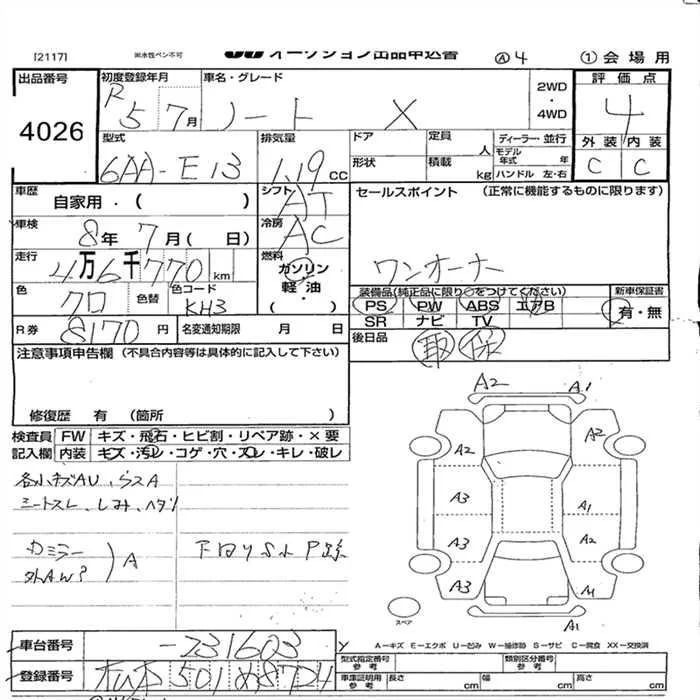 [2117] ※水性ペン不可 オークション出品申込書 Ⓐ4 ①会場用
出品番号 4026
初度登録年月 R5 7月
車名・グレード ノート X
2WD・4WD
評価点 4
型式 6AA-E13
排気量 1.19 CC
ドア 形状
定員 人 積載 kg
ディーラー・並行
モデル年式 年
ハンドル 左・右
外装 C 内装 C
車歴 自家用・( )
シフト AT
セールスポイント (正常に機能するものに限ります)
ワンオーナー
車検 8年 7月( 日)
冷房 AC
走行 4万6千770km
燃料 ガソリン・軽・油・( )
色 クロ 色替 色コード KH3
装備品(純正品に限り○をつけてください) 新車保証書
PS PW ABS エアB 有・無
SR ナビ TV
R券 8170円 名変通知期限 月 日
後日品 取 保
注意事項申告欄(不具合内容等は具体的に記入して下さい)
修復歴 有 (箇所 )
検査員記入欄 FW キズ・飛石・ヒビ割・リペア跡・×要
内装 キズ・汚レ・コゲ・穴・スレ・キレ・破レ
各小キズAU、
シートスレ、しみ、ヘタリ
カミラー
A
A2 A1
A2 A2
A3 A1
A3 A2
A3
A1
スペア
A-キズ E-エクボ U-凹み W-補修跡 S-サビ C-腐食 XX-交換済
車台番号 -231603
登録番号 501 8724
型式指定番号 参考 類別区分番号 参考
車庫証明用 参考 長さ cm 幅 cm 高さ cm